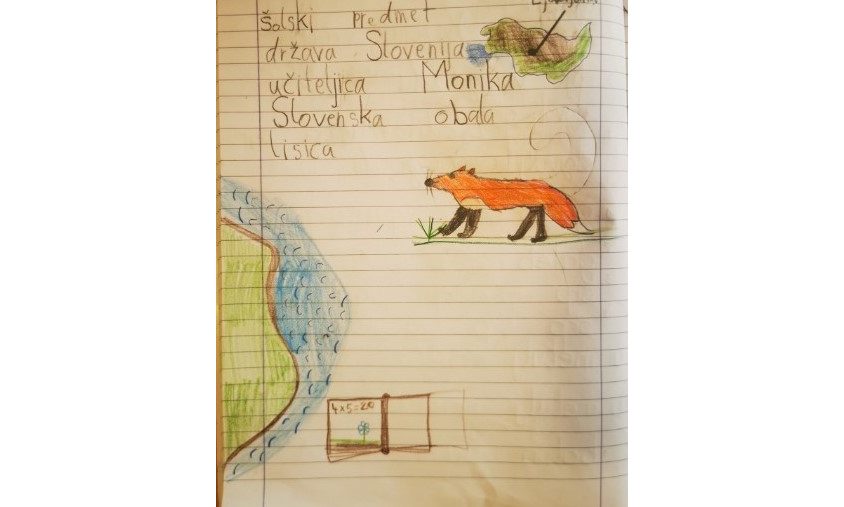 šolski predmet
država Slovenija
učiteljica Monika
Slovenska obala
lisica
4x5=20